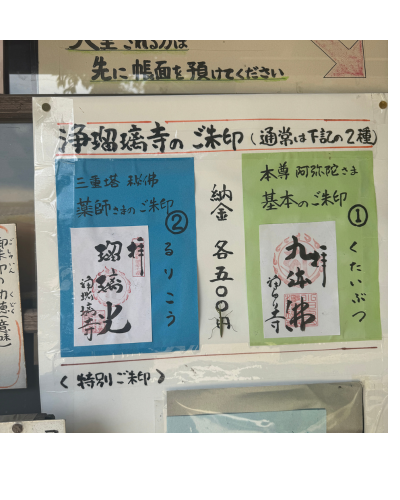 入堂される方は
先に帳面を預けてください
浄瑠璃寺のご朱印(通常は下記の2種)
本尊 阿弥陀さま
基本のご朱印
①
くたいぶつ
拝
九体佛
浄瑠璃寺
納金 各五〇〇円
三重塔 秘佛
薬師さまのご朱印
②
るりこう
拝
瑠璃光
浄瑠璃寺
〈特別ご朱印〉